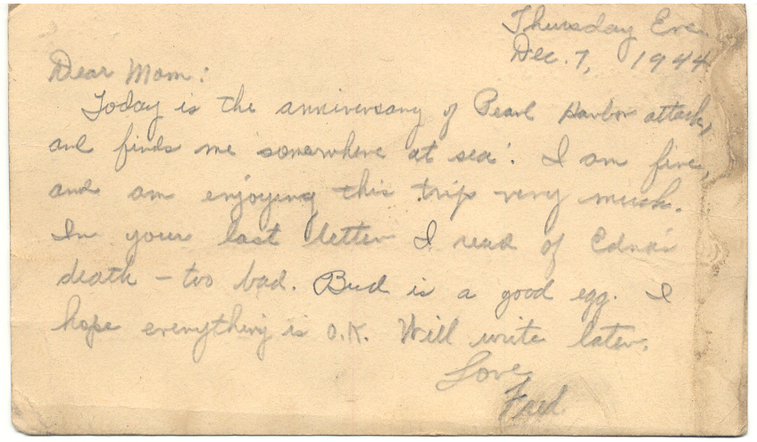 Thursday Eve.
Dec. 7, 1944
Dear Mom:
Today is the anniversary of Pearl Harbor attack,
and finds me somewhere at sea! I am fine,
and am enjoying this trip very much.
In your last letter I read of Edna's
death - too bad. Bud is a good egg. I
hope everything is O.K. Will write later.
Love,
Fred